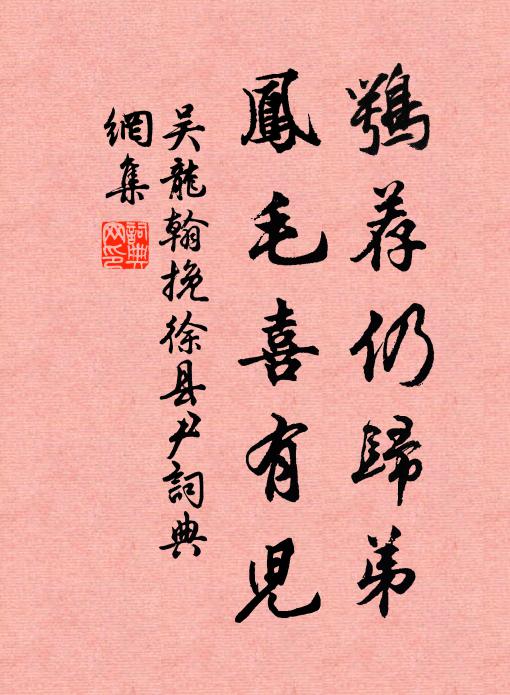 鶚荐仍歸弟
鳳毛喜有児
吴龍翰挽徐县尹詞典
網集
詞典
网印